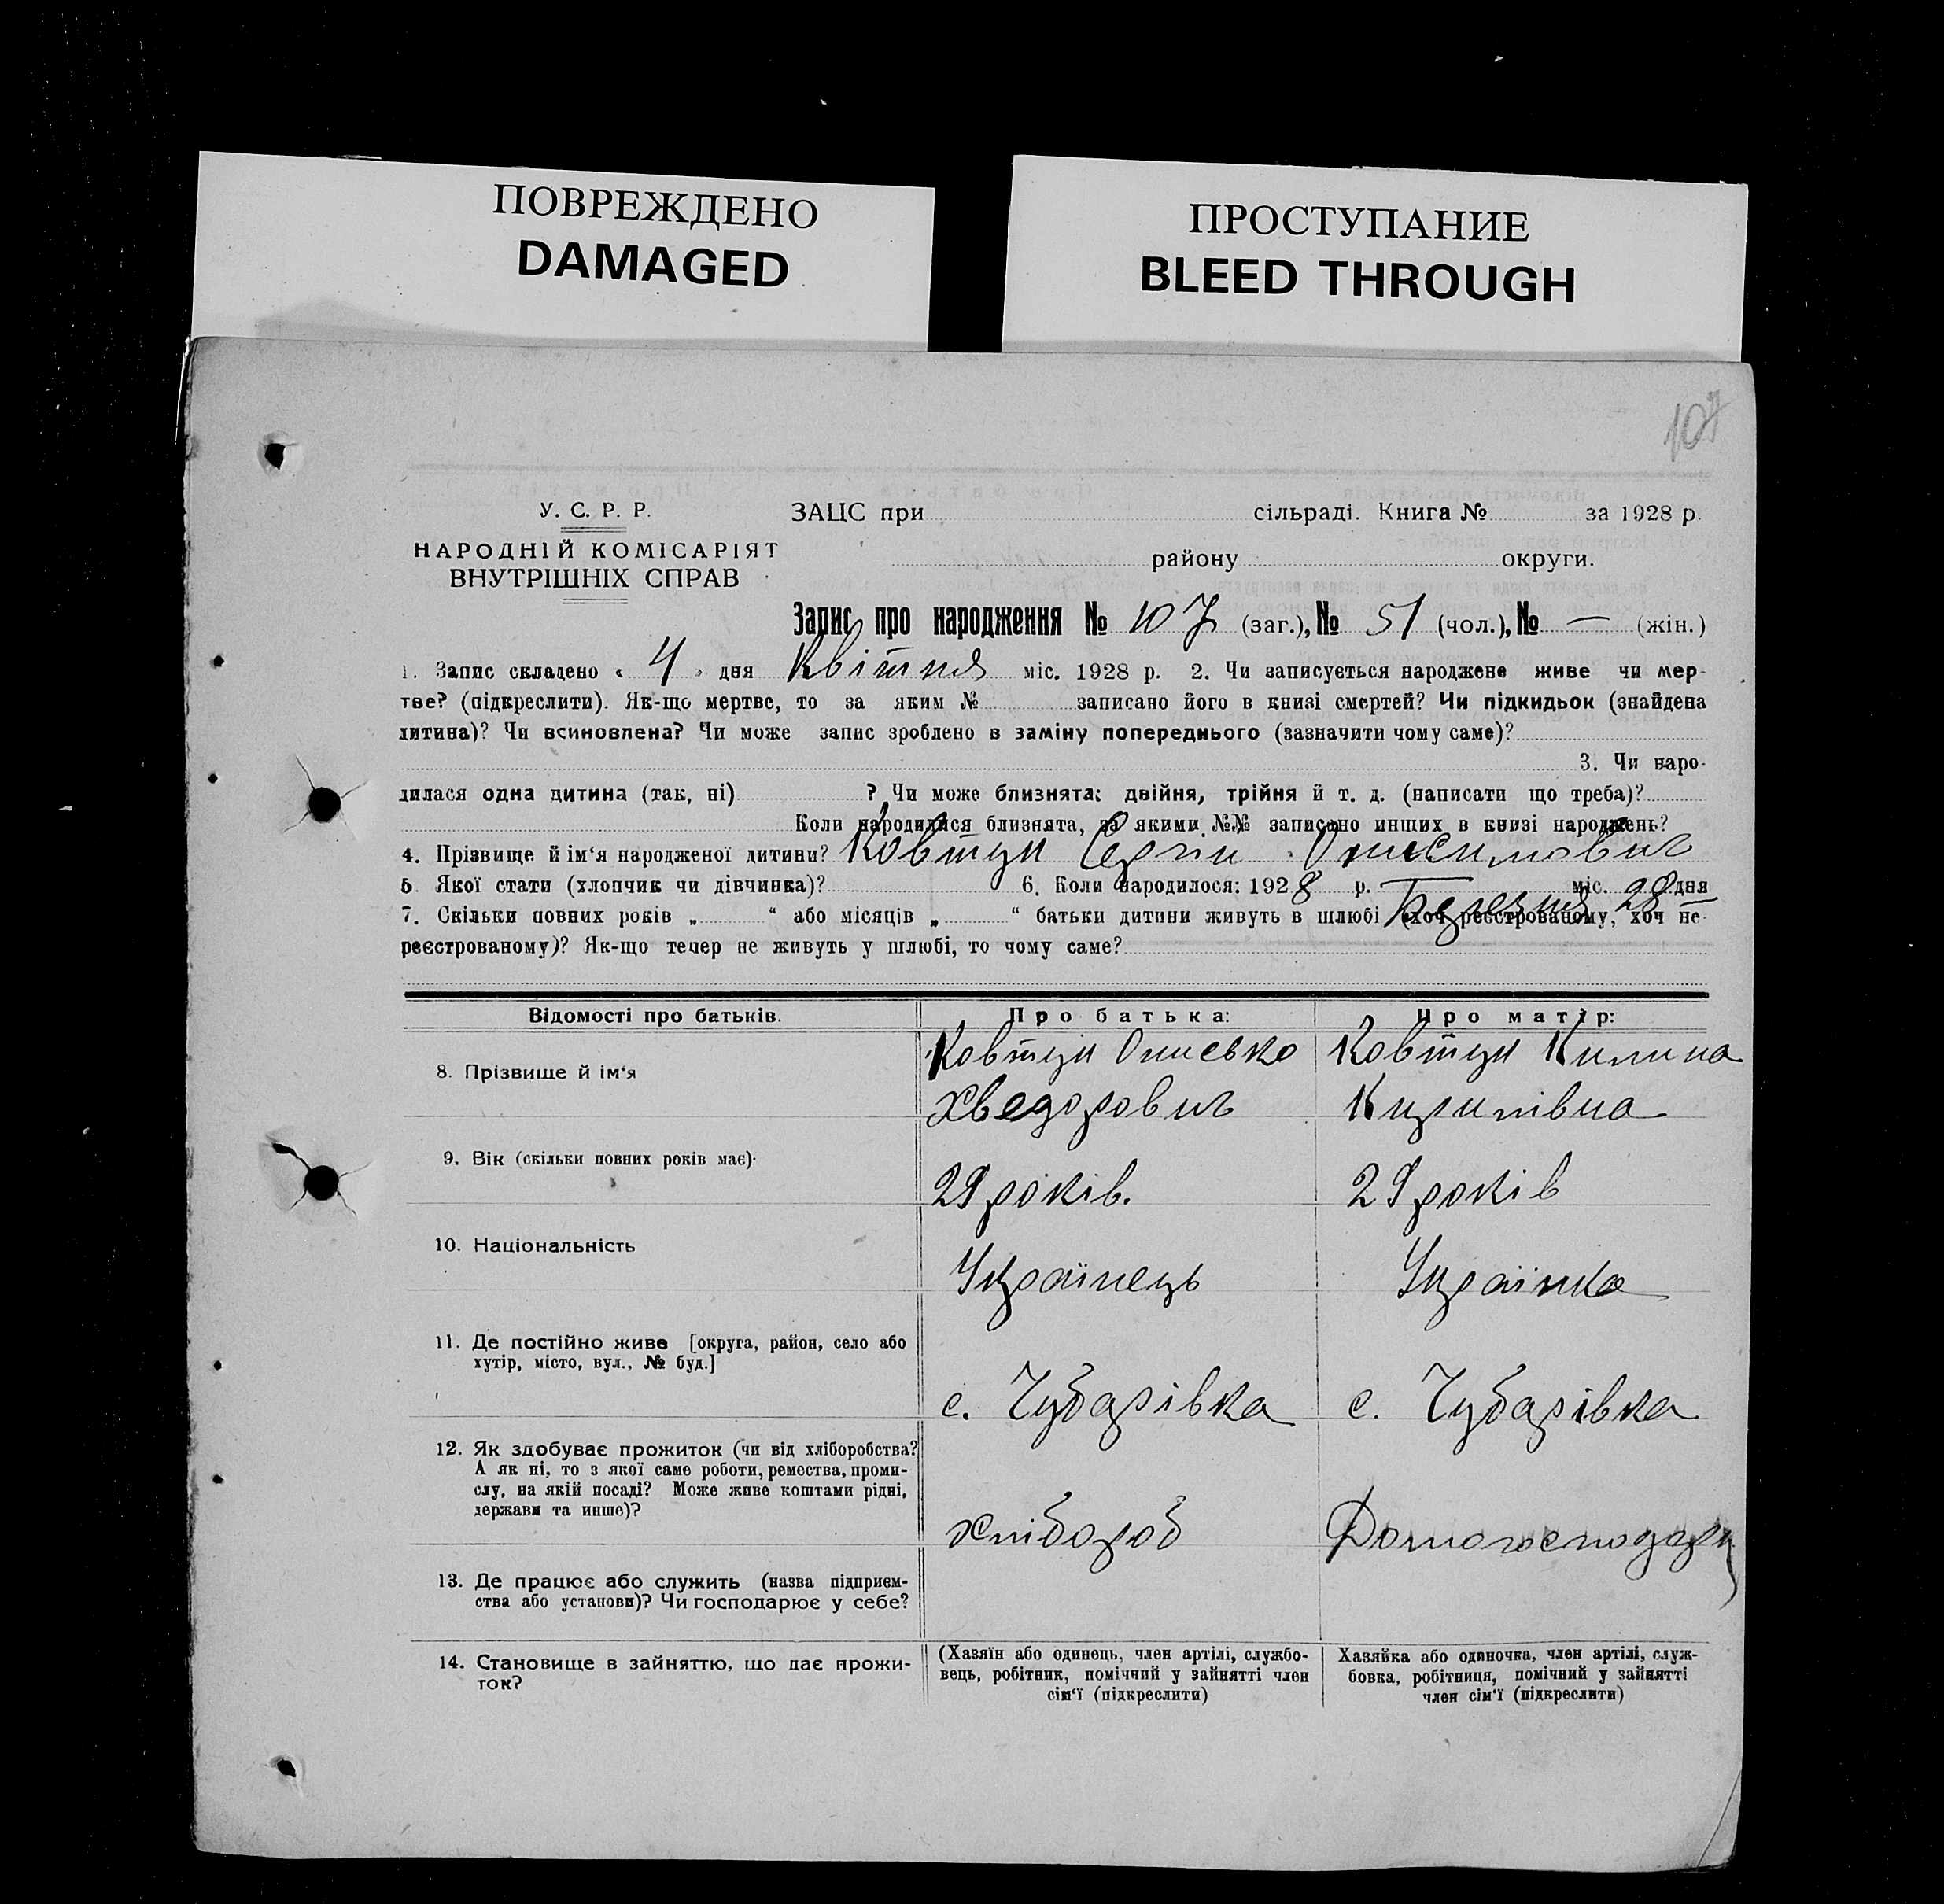 ПОВРЕЖДЕНО
DAMAGED
ПРОСТУПАНИЕ
BLEED THROUGH
107
У. С. Р. Р.
НАРОДНІЙ КОМІСАРІЯТ
ВНУТРІШНІХ СПРАВ
ЗАЦС при сільраді. Книга № за 1928 р.
району округи.
Запис про народження № 107 (заг.), № 51 (чол.), № — (жін.)
1. Запис складено « 4 » дня Квітня міс. 1928 р. 2. Чи записується народжене живе чи мер-
тве? (підкреслити). Як-що мертве, то за яким № записано його в книзі смертей? Чи підкидьок (знайдена
дитина)? Чи всиновлена? Чи може запис зроблено в заміну попереднього (зазначити чому саме)?
3. Чи наро-
дилася одна дитина (так, ні) ? Чи може близнята: двійня, трійня й т. д. (написати що треба)?
Коли народилися близнята, за якими №№ записано инших в книзі народжень?
4. Прізвище й ім‘я народженої дитини? Ковтун Сергій Онисимович
5. Якої стати (хлопчик чи дівчинка)? 6. Коли народилося: 1928 р. Березня міс. 28 дня
7. Скільки повних років „ “ або місяців „ “ батьки дитини живуть в шлюбі (хоч реєстрованому, хоч не-
реєстрованому)? Як-що тепер не живуть у шлюбі, то чому саме?
Відомості про батьків. Про батька: Про матір:
8. Прізвище й ім‘я Ковтун Онисько Ковтун Килина
Хведорович Кирилівна
9. Вік (скільки повних років має) 29 років. 29 років
10. Національність Українець Українка
11. Де постійно живе [округа, район, село або
хутір, місто, вул., № буд.]
с. Чубарівка с. Чубарівка
12. Як здобуває прожиток (чи від хліборобства?
А як ні, то з якої саме роботи, ремества, проми-
слу, на якій посаді? Може живе коштами рідні,
держави та инше)?
хлібороб Домогосподарк
13. Де працює або служить (назва підприєм-
ства або установи)? Чи господарює у себе?
14. Становище в зайняттю, що дає прожи-
ток?
(Хазяїн або одинець, член артілі, службо-
вець, робітник, помічний у зайнятті член
сім‘ї (підкреслити)
Хазяйка або одиночка, член артілі, служ-
бовка, робітниця, помічний у зайнятті
член сім‘ї (підкреслити)